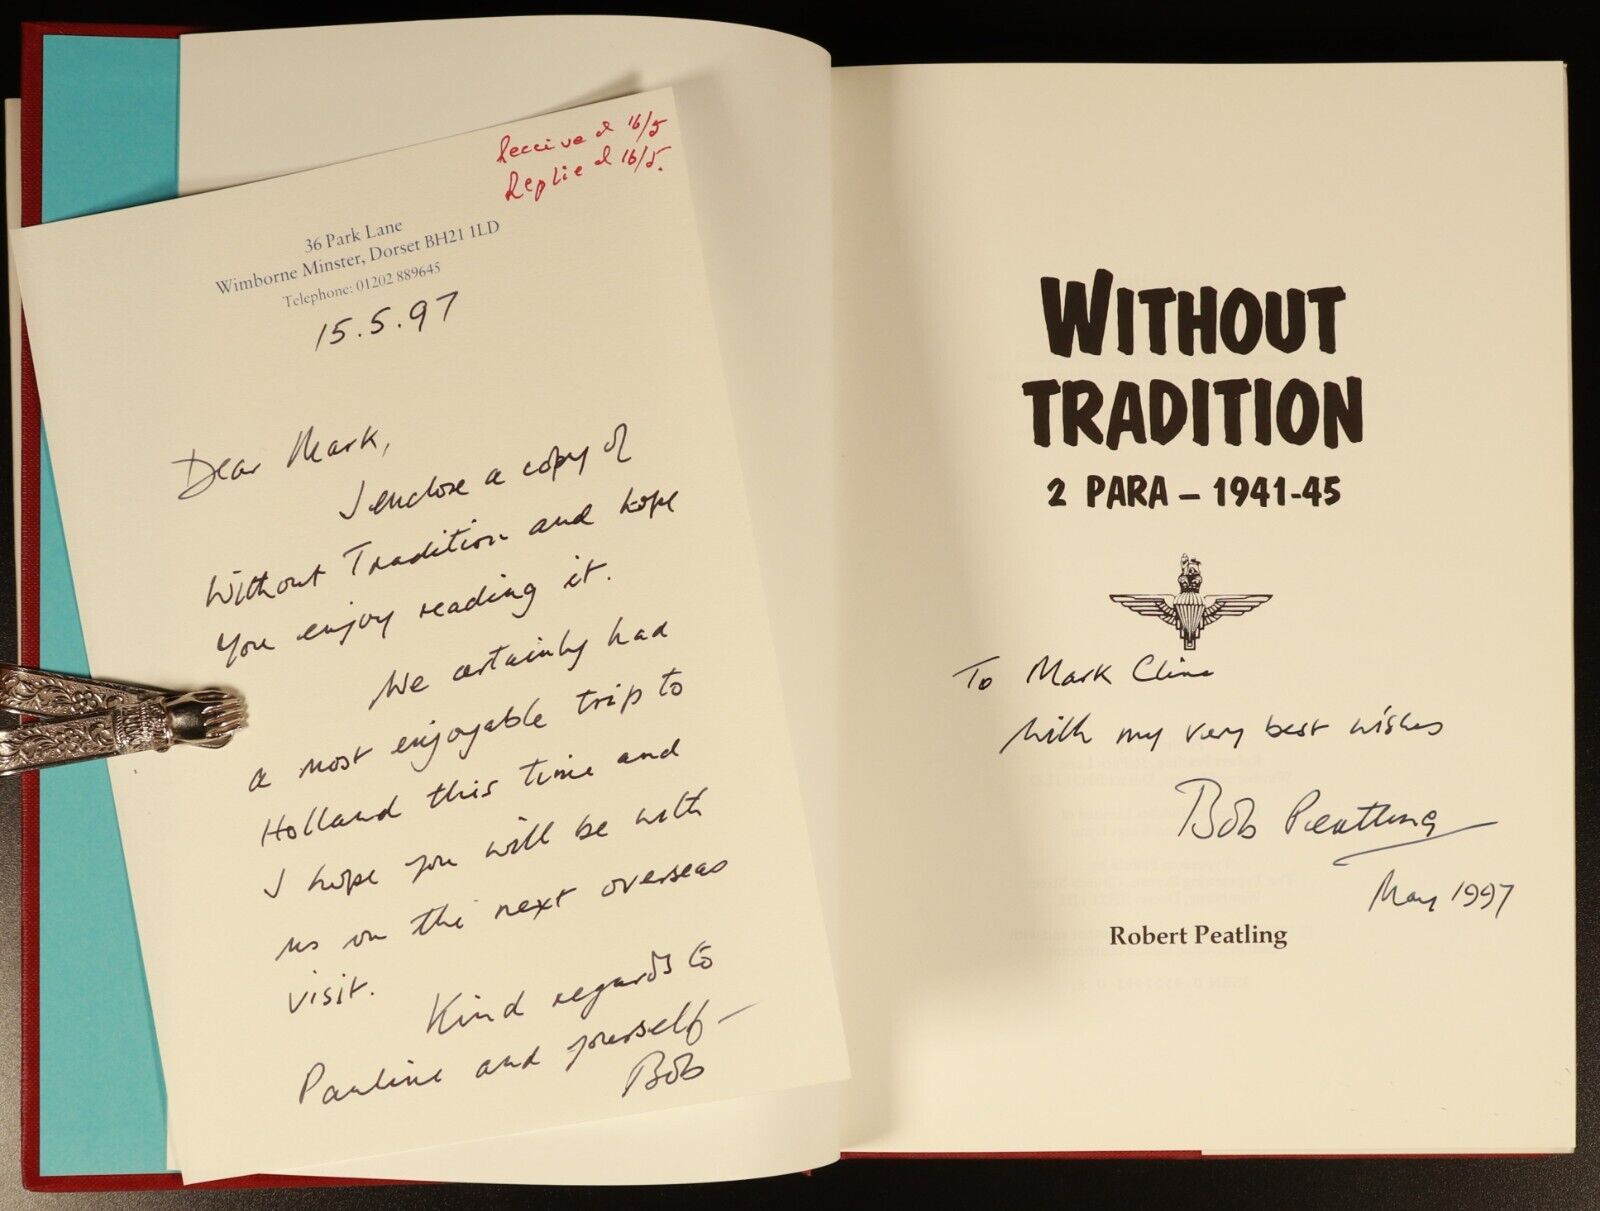 Received 16/5
Replied 16/5.
36 Park Lane
Wimborne Minster, Dorset BH21 1LD
Telephone: 01202 889645
15.5.97
Dear Mark,
I enclose a copy of
Without Tradition and hope
you enjoy reading it.
We certainly had
a most enjoyable trip to
Holland this time and
I hope you will be with
us on the next overseas
visit.
Kind regards to
Pauline and yourself –
Bob
WITHOUT
TRADITION
2 PARA – 1941-45
To Mark Cline
With my very best wishes
Bob Peatling
May 1997
Robert Peatling